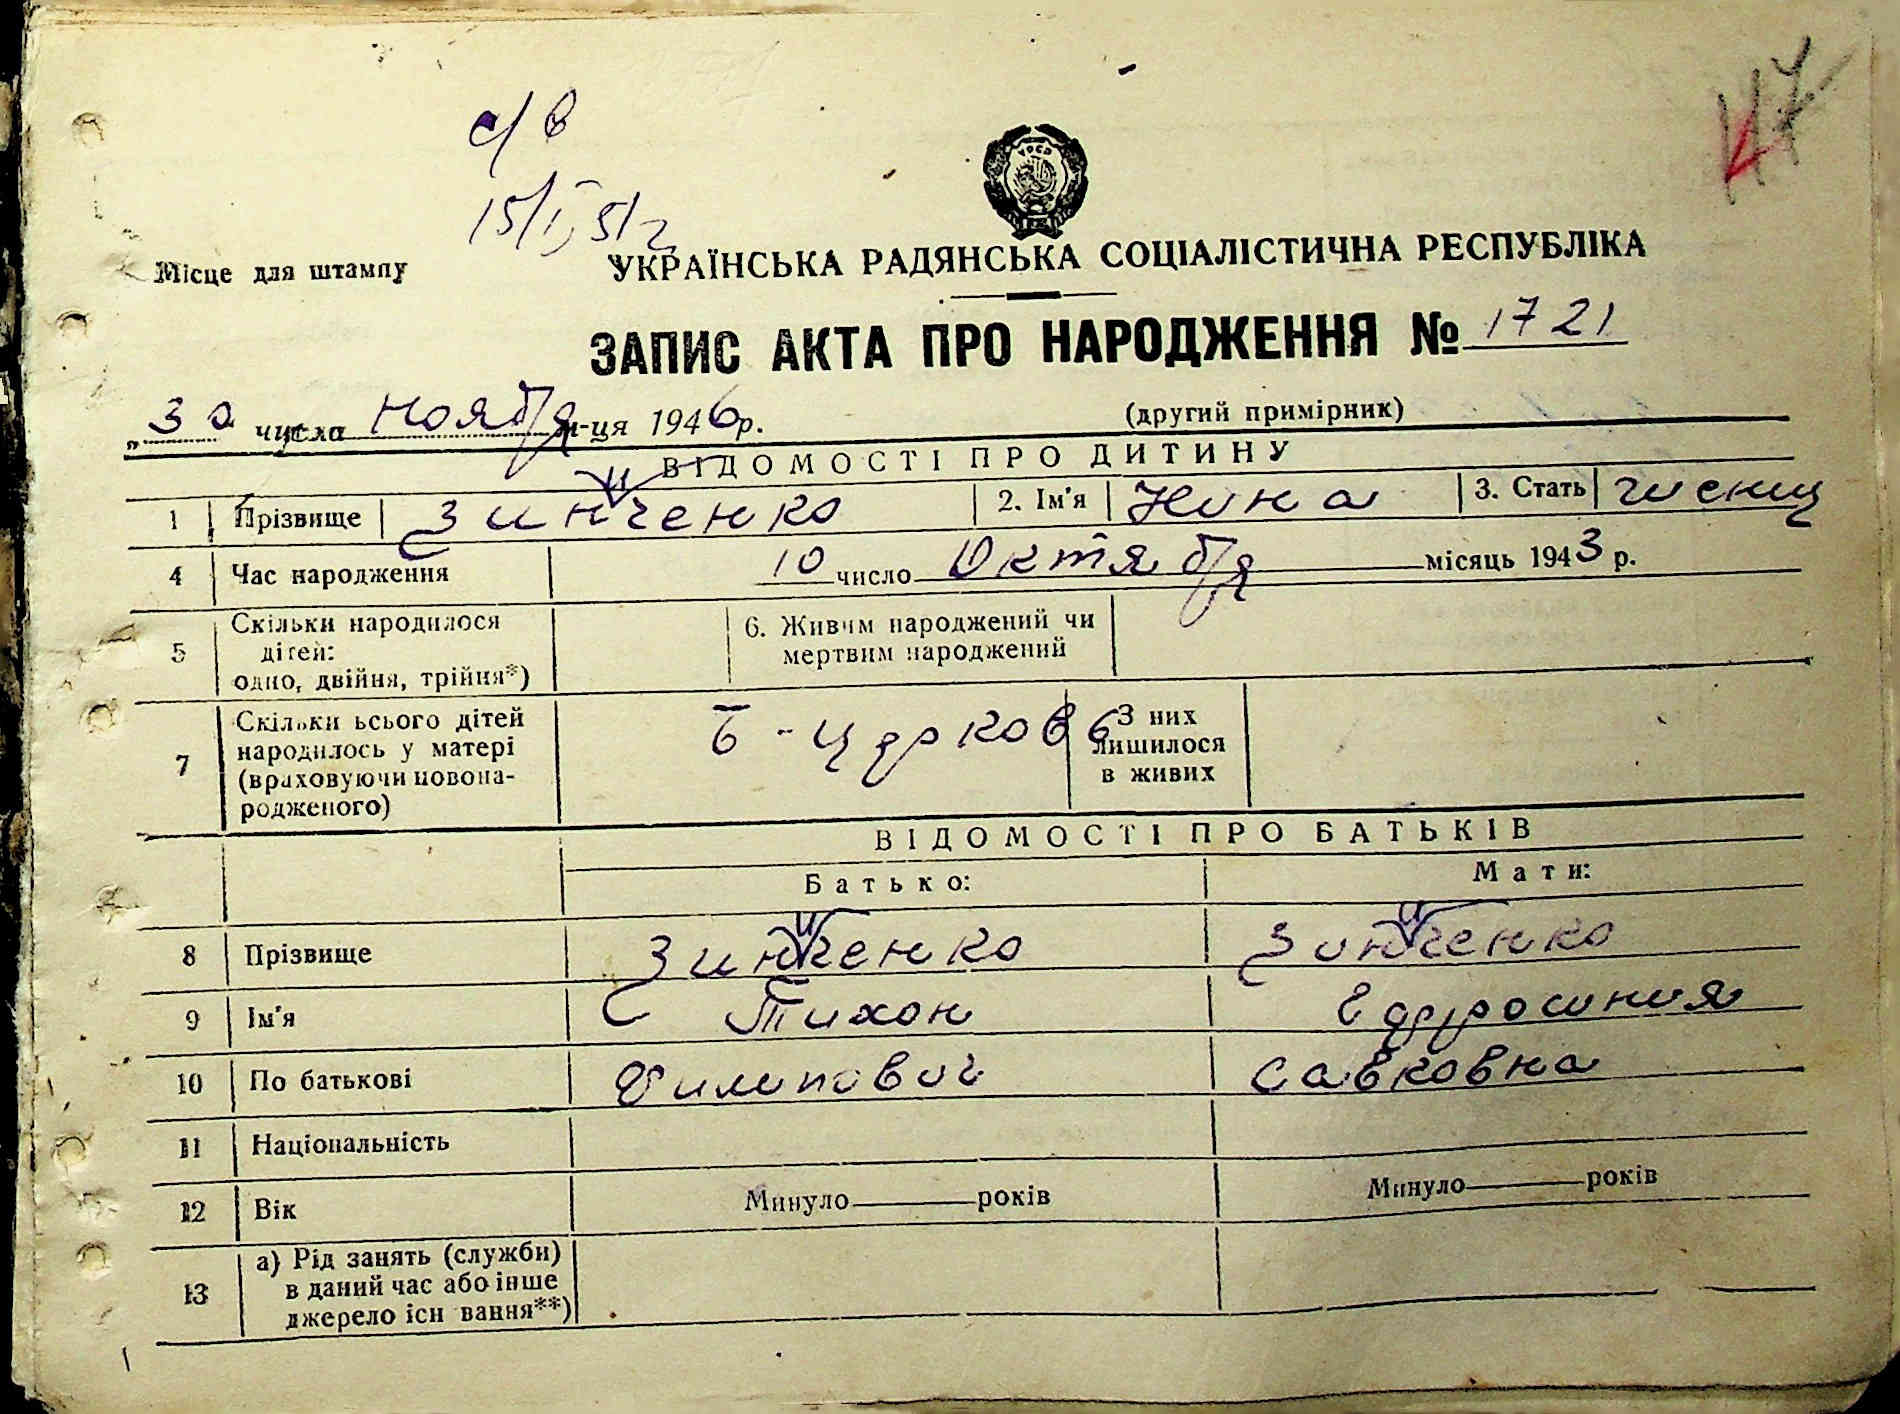 с/в
15/I, 51 г
47
УРСР
Місце для штампу
УКРАЇНСЬКА РАДЯНСЬКА СОЦІАЛІСТИЧНА РЕСПУБЛІКА
ЗАПИС АКТА ПРО НАРОДЖЕННЯ № 1721
„30" числа ноября м-ця 1946 р. (другий примірник)
ВІДОМОСТІ ПРО ДИТИНУ
1 Прізвище Зинченко 2. Ім'я Нина 3. Стать
4 Час народження 10 число Октября місяць 1943 р.
5 Скільки народилося дітей: одно, двійня, трійня*) 6. Живим народжений чи мертвим народжений
7 Скільки всього дітей народилось у матері (враховуючи новонародженого) Б-Церковь З них лишилося в живих
ВІДОМОСТІ ПРО БАТЬКІВ
Батько: Мати:
8 Прізвище Зинченко Зинченко
9 Ім'я Тихон Ефросиния
10 По батькові Филипович Савковна
11 Національність
12 Вік Минуло років Минуло років
13 а) Рід занять (служби) в даний час або інше джерело існ вання**)